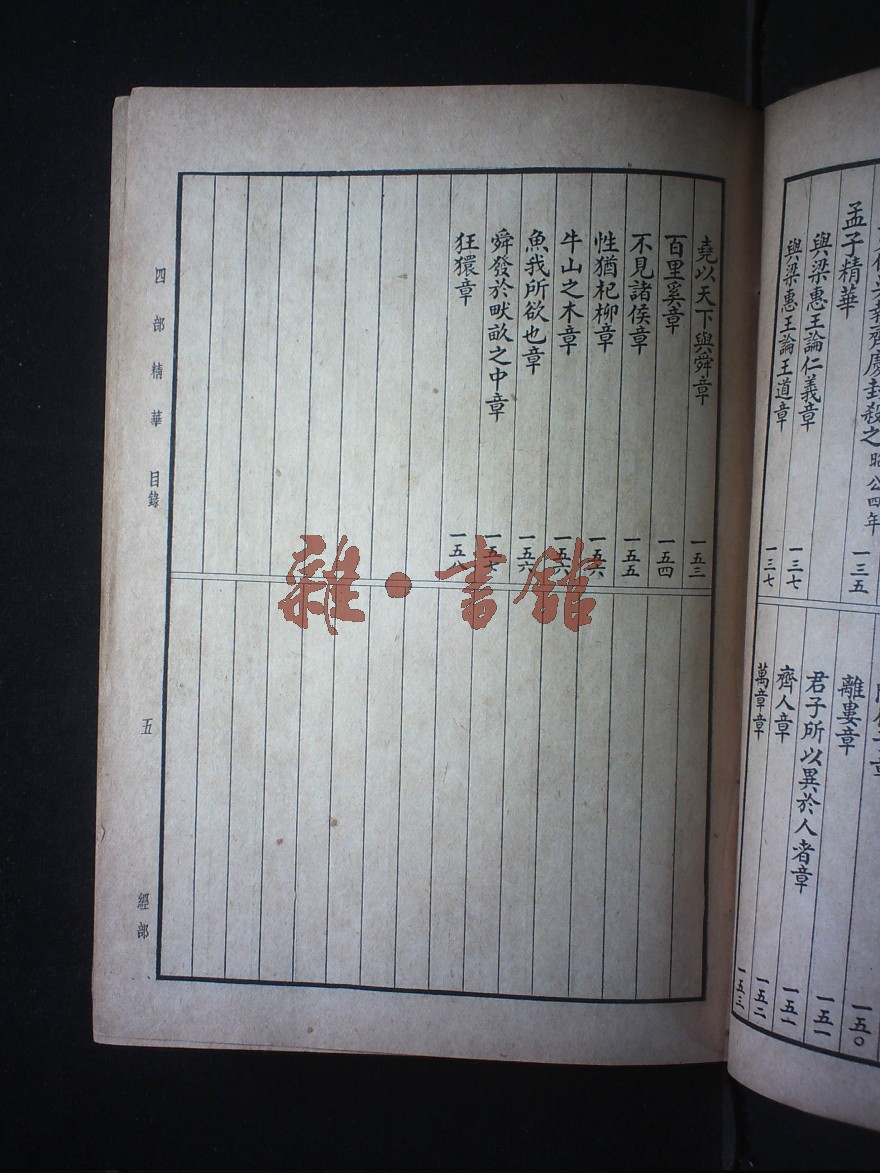 孟子精華
與梁惠王論仁義章
一三七
與梁惠王論王道章
一三七
齊慶封殺之昭公四年
一三五
離婁章
一五〇
君子所以異於人者章
一五一
齊人章
一五二
萬章章
一五三
堯以天下與舜章
一五三
百里奚章
一五四
不見諸侯章
一五五
性猶杞柳章
一五六
牛山之木章
一五六
魚我所欲也章
一五六
舜發於畎畝之中章
一五七
狂獧章
一五八
四部精華 目錄 五 經部
雜·書館